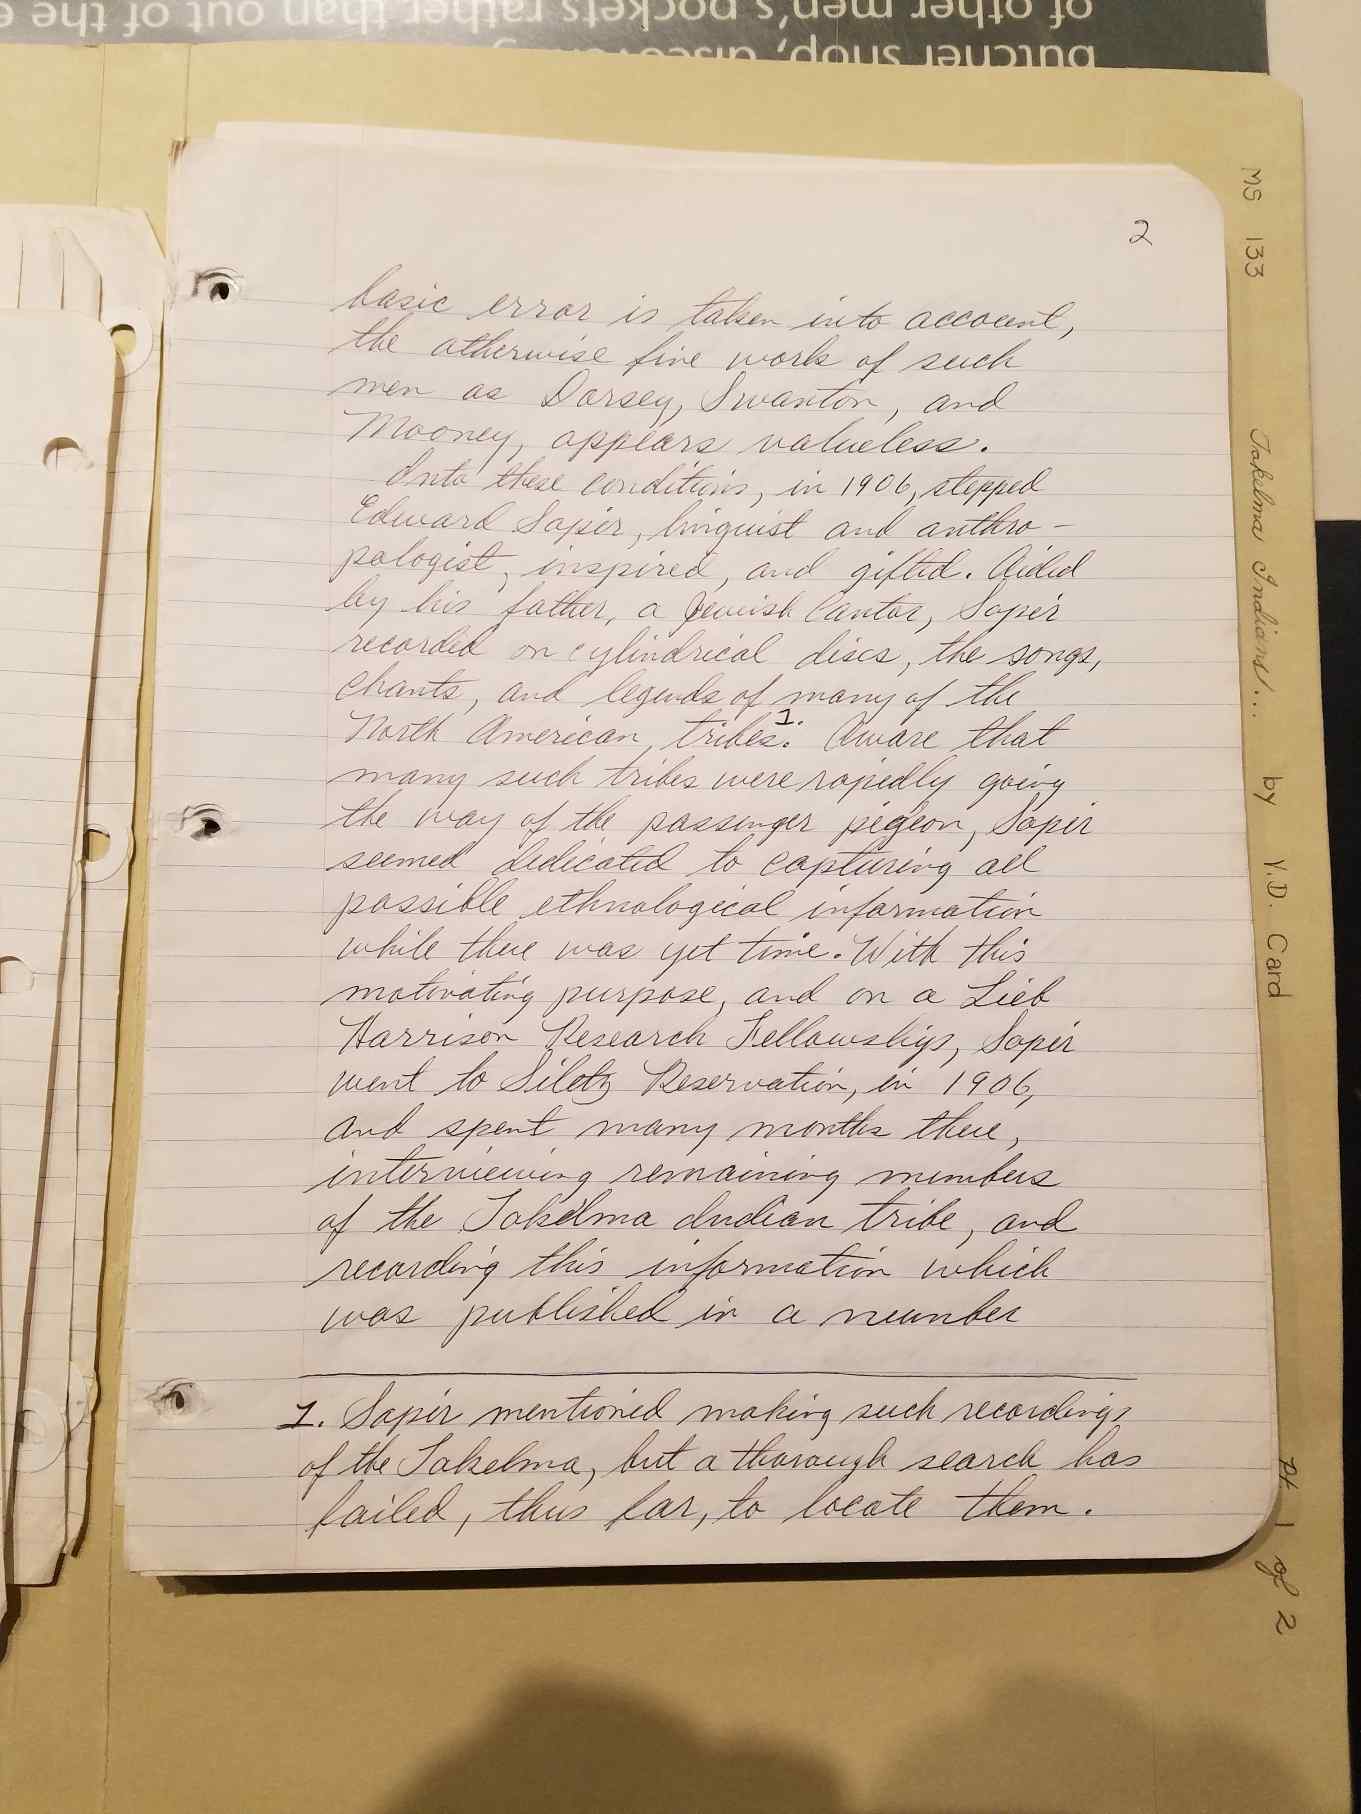 of other men's pockets rather than out of the e
butcher shop, discover
2
basic error is taken into account,
the otherwise fine work of such
men as Dorsey, Swanton, and
Mooney, appears valueless.
Into these conditions, in 1906, stepped
Edward Sapir, linguist and anthro-
pologist, inspired, and gifted. Aided
by his father, a Jewish Cantor, Sapir
recorded on cylindrical discs, the songs,
chants, and legends of many of the
North American tribes.1. Aware that
many such tribes were rapidly going
the way of the passenger pigeon, Sapir
seemed dedicated to capturing all
possible ethnological information
while there was yet time. With this
motivating purpose, and on a Lieb
Harrison Research Fellowship, Sapir
went to Siletz Reservation, in 1906,
and spent many months there,
interviewing remaining members
of the Takelma Indian tribe, and
recording this information which
was published in a number
1. Sapir mentioned making such recordings
of the Takelma, but a thorough search has
failed, thus far, to locate them.
MS 133 Takelma Indians... by Y.D. Card Pt 1 of 2